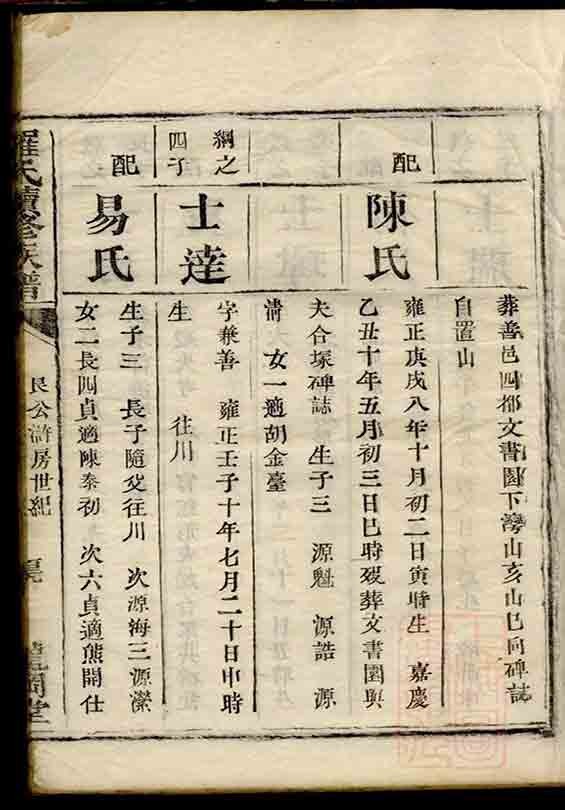 葬善邑四都文書園下灣山亥山巳向碑誌
自置山
配
陳氏
雍正庚戌八年十月初二日寅時生　嘉慶
乙丑十年五月初三日巳時歿葬文書園與
夫合塚碑誌　生子三　源魁　源誥　源
清　女一適胡金臺
綱之
四子
士達
字兼善　雍正壬子十年七月二十日申時
生　往川
配
易氏
生子三　長子隨父往川　次源海三源瀠
女二長四貞適陳泰初　次六貞適熊開仕
羅氏續修族譜
良公滸房世紀
堂